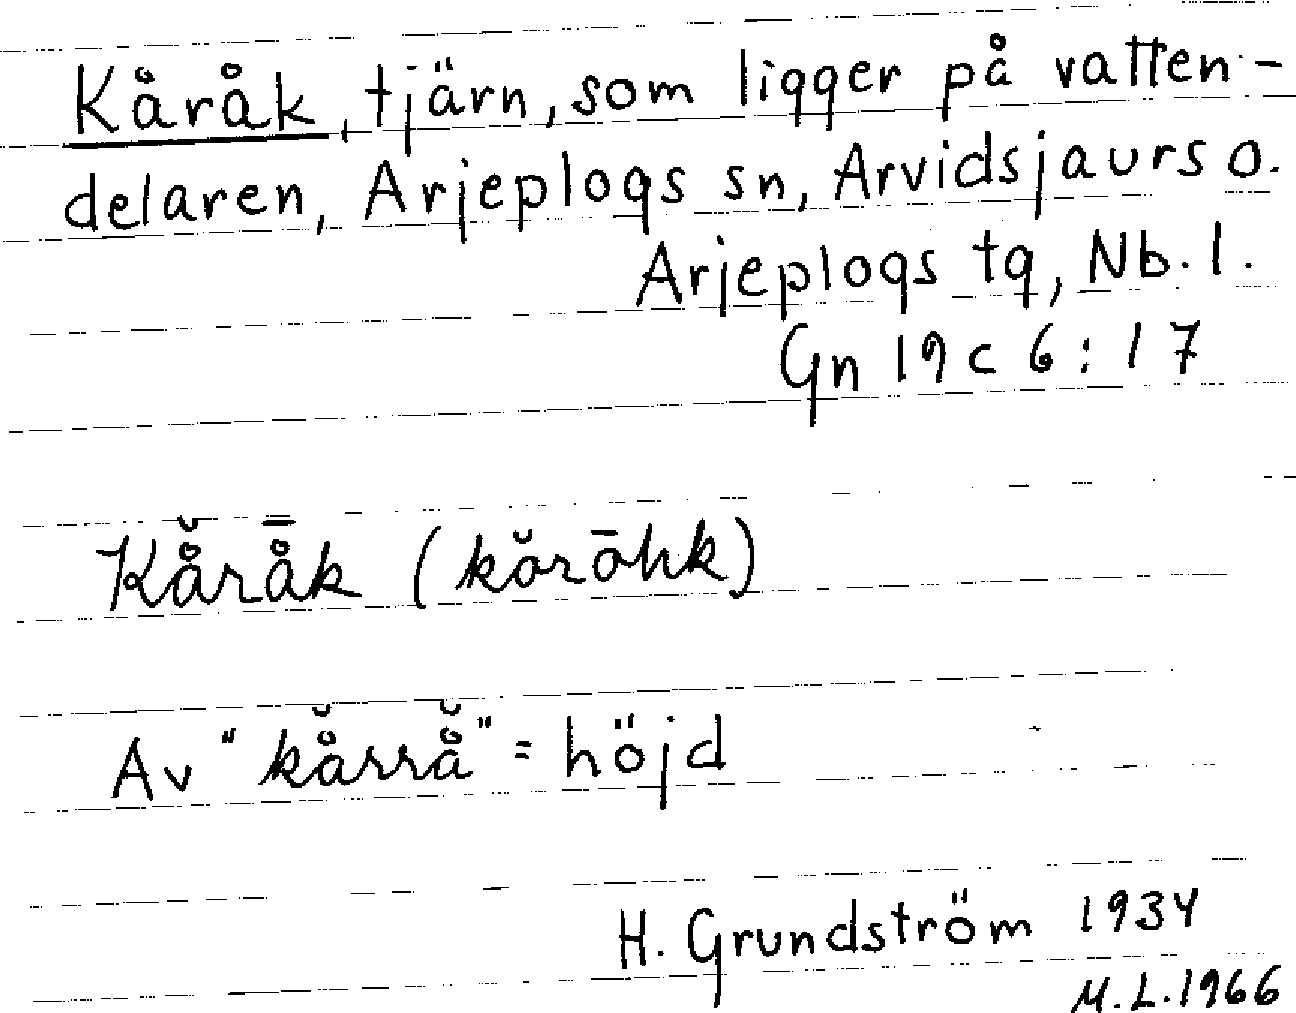 Kåråk, tjärn, som ligger på vatten-
delaren, Arjeplogs sn, Arvidsjaurs o.
Arjeplogs tg, Nb. l.
Gn 19 c 6 : 17
Kå̆rå̄k (kŏrōhk)
Av "kå̆rrå̆" = höjd
H. Grundström 1934
M.L.1966